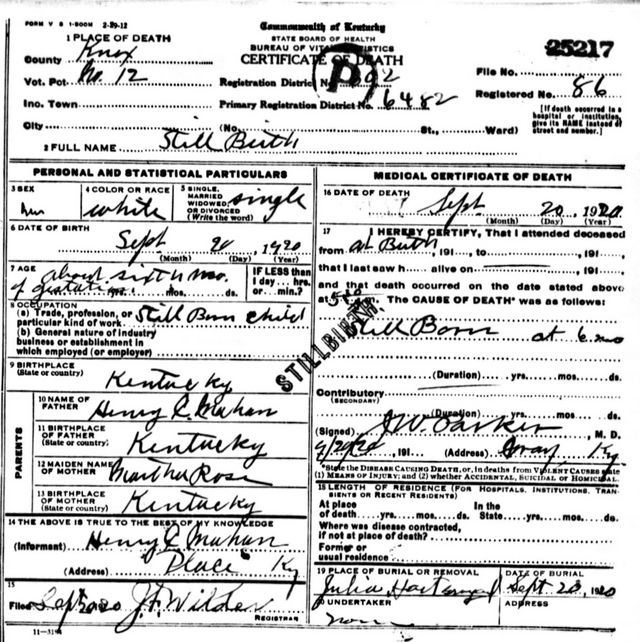 FORM V S 1-500M 2-29-12
Commonwealth of Kentucky
STATE BOARD OF HEALTH
BUREAU OF VITAL STATISTICS
CERTIFICATE OF DEATH
25217
1 PLACE OF DEATH
County Knox
Vot. Pct. No. 12
Registration District
P
File No.
Registered No. 86
Ino. Town
Primary Registration District No. 6482
[If death occurred in a hospital or institution, give its NAME instead of street and number.]
City (No. St., Ward)
2 FULL NAME Still Birth
PERSONAL AND STATISTICAL PARTICULARS
3 SEX
4 COLOR OR RACE white
5 SINGLE, MARRIED WIDOWED OR DIVORCED (Write the word) single
6 DATE OF BIRTH
Sept 20 1920
(Month) (Day) (Year)
7 AGE about sixth mo. of gestation mos. ds.
IF LESS than 1 day... hrs. or ... min.?
8 OCCUPATION
(a) Trade, profession, or particular kind of work Still Born child
(b) General nature of industry business or establishment in which employed (or employer)
9 BIRTHPLACE
(State or country) Kentucky
PARENTS
10 NAME OF FATHER Henry C. Mahan
11 BIRTHPLACE OF FATHER (State or country) Kentucky
12 MAIDEN NAME OF MOTHER Martha Rose
13 BIRTHPLACE OF MOTHER (State or country) Kentucky
14 THE ABOVE IS TRUE TO THE BEST OF MY KNOWLEDGE
(Informant) Henry C Mahan
(Address) Place Ky
15
Filed Sep 1920 J. F. Wilder
REGISTRAR
11-3184
MEDICAL CERTIFICATE OF DEATH
16 DATE OF DEATH
Sept 20 1920
(Month) (Day) (Year)
17 I HEREBY CERTIFY, That I attended deceased
from at Birth, 191 , to , 191 ,
that I last saw h alive on , 191 ,
and that death occurred on the date stated above
at m. The CAUSE OF DEATH* was as follows:
STILLBIRTH.
Still Born at 6 mo
(Duration) yrs. mos. ds.
Contributory
(SECONDARY)
(Duration) yrs. mos. ds.
(Signed) J W Parker, M. D.
9/29/20, 191 (Address) Gray Ky
*State the DISEASE CAUSING DEATH, or, in deaths from VIOLENT CAUSES state (1) MEANS OF INJURY; and (2) whether ACCIDENTAL, SUICIDAL or HOMICIDAL.
18 LENGTH OF RESIDENCE (FOR HOSPITALS, INSTITUTIONS, TRANSIENTS OR RECENT RESIDENTS)
At place of death yrs. mos. ds. In the State yrs. mos. ds.
Where was disease contracted, if not at place of death?
Former or usual residence
19 PLACE OF BURIAL OR REMOVAL
DATE OF BURIAL
Julia Sept. 20, 1920
20 UNDERTAKER
ADDRESS
none